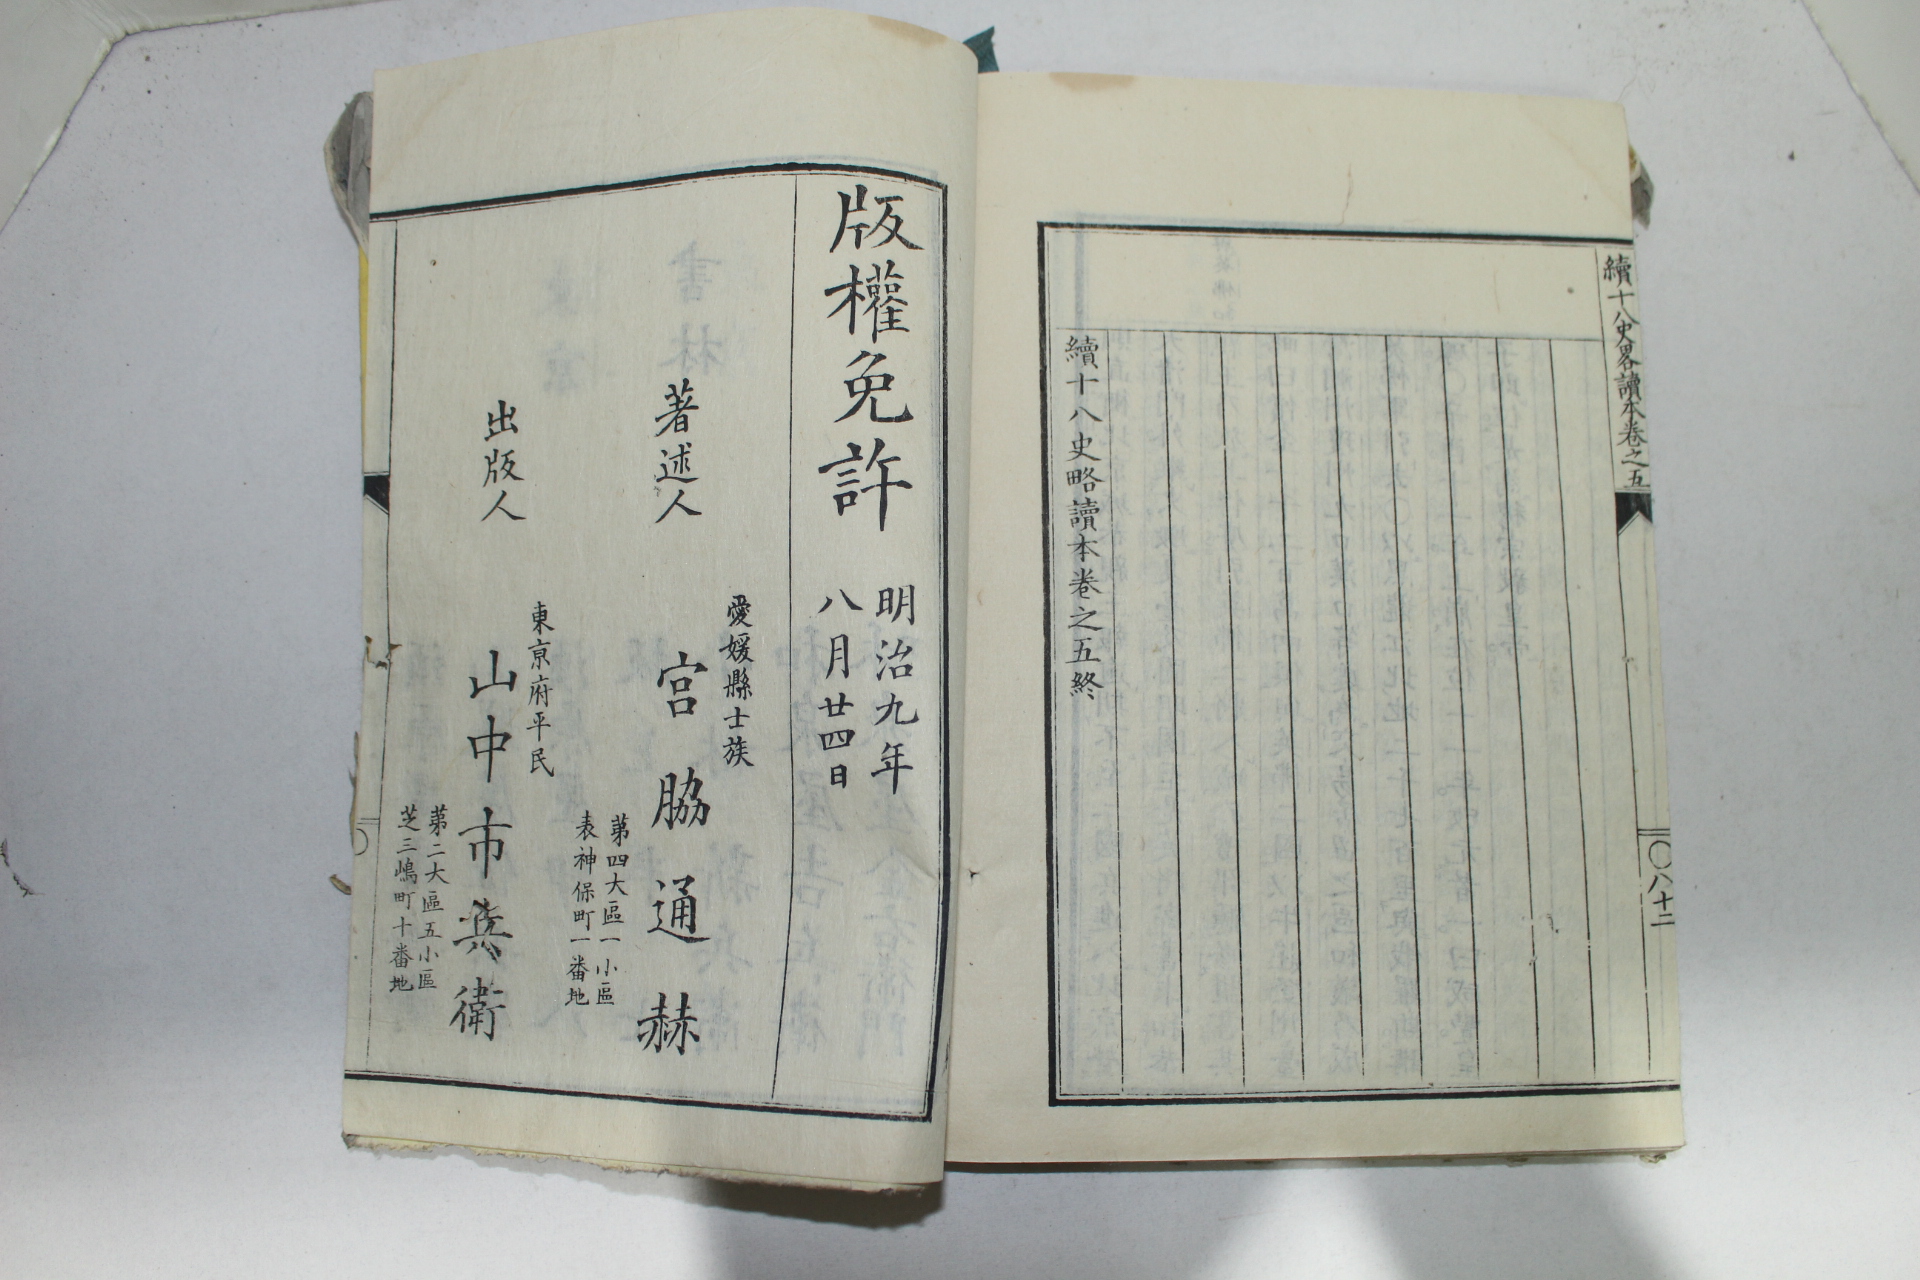 續十八史畧讀本卷之五
〇八十二
續十八史略讀本卷之五終
版權免許
明治九年
八月廿四日
著述人
愛媛縣士族
宮脇通赫
第四大區一小區
表神保町一番地
出版人
東京府平民
山中市兵衛
第二大區五小區
芝三嶋町十番地